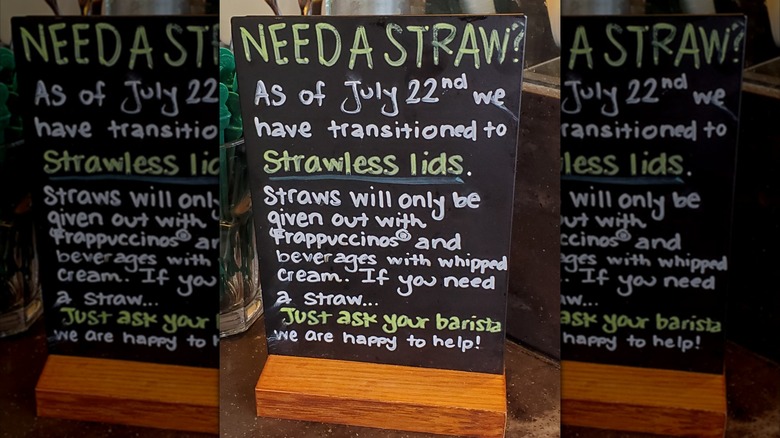 NEED A STRAW?
As of July 22nd we
have transitioned to
Strawless lids.
Straws will only be
given out with
Frappuccinos® and
beverages with whipped
cream. If you need
a straw...
Just ask your barista
we are happy to help!